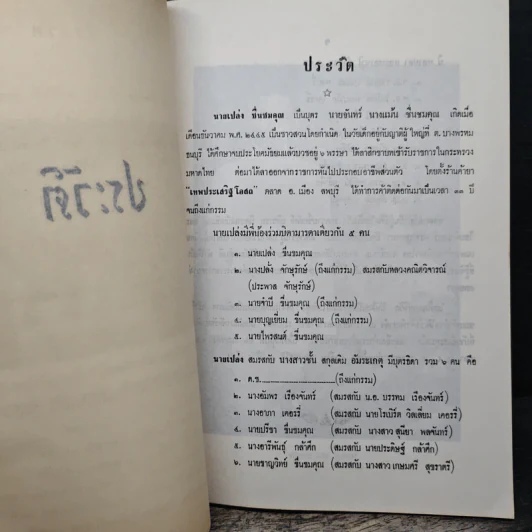 ประวัติ
ประวัติ
นายเปล่ง ชื่นชมคุณ เป็นบุตร นายจันทร์ นางแม้น ชื่นชมคุณ เกิดเมื่อ
เดือนธันวาคม พ.ศ. ๒๔๔๕ เป็นชาวสวนโดยกำเนิด ในวัยเด็กอยู่กับญาติผู้ใหญ่ที่ ต. บางพรหม
ธนบุรี ได้ศึกษาจบประโยคมัธยมแล้วบวชอยู่ ๖ พรรษา ได้ลาสิกขาบทเข้ารับราชการในกระทรวง
มหาดไทย ต่อมาได้ลาออกจากราชการหันไปประกอบอาชีพส่วนตัว โดยตั้งร้านค้ายา
"เทพประเสริฐโอสถ" ตลาด อ. เมือง ลพบุรี ได้ทำการค้าติดต่อกันมาเป็นเวลา ๓๓ ปี
จนถึงแก่กรรม
นายเปล่งมีพี่น้องร่วมบิดามารดาเดียวกัน ๕ คน
๑. นายเปล่ง ชื่นชมคุณ
๒. นางปลั่ง จักษุรักษ์ (ถึงแก่กรรม) สมรสกับหลวงคณิตวิจารณ์
(ประพาส จักษุรักษ์)
๓. นายจำปี ชื่นชมคุณ (ถึงแก่กรรม)
๔. นายบุญเยี่ยม ชื่นชมคุณ (ถึงแก่กรรม)
๕. นายไพรสนต์ ชื่นชมคุณ
นายเปล่ง สมรสกับ นางสาวชั้น สกุลเดิม อัมระเกตุ มีบุตรธิดา รวม ๖ คน คือ
๑. ด.ช..........................(ถึงแก่กรรม)
๒. นางอัมพร เรืองจันทร์ (สมรสกับ น.อ. บรรทม เรืองจันทร์)
๓. นางอาภา เคอรรี่ (สมรสกับ นายโรเบิร์ต วิลเลี่ยม เคอรรี่)
๔. นายปรีชา ชื่นชมคุณ (สมรสกับ นางสาว สุนียา พลจันทร์)
๕. นางอารีพันธุ์ กล้าศึก (สมรสกับ นายประดิษฐ์ กล้าศึก)
๖. นายชาญวิทย์ ชื่นชมคุณ (สมรสกับ นางสาว เกษมศรี สุขราตรี)